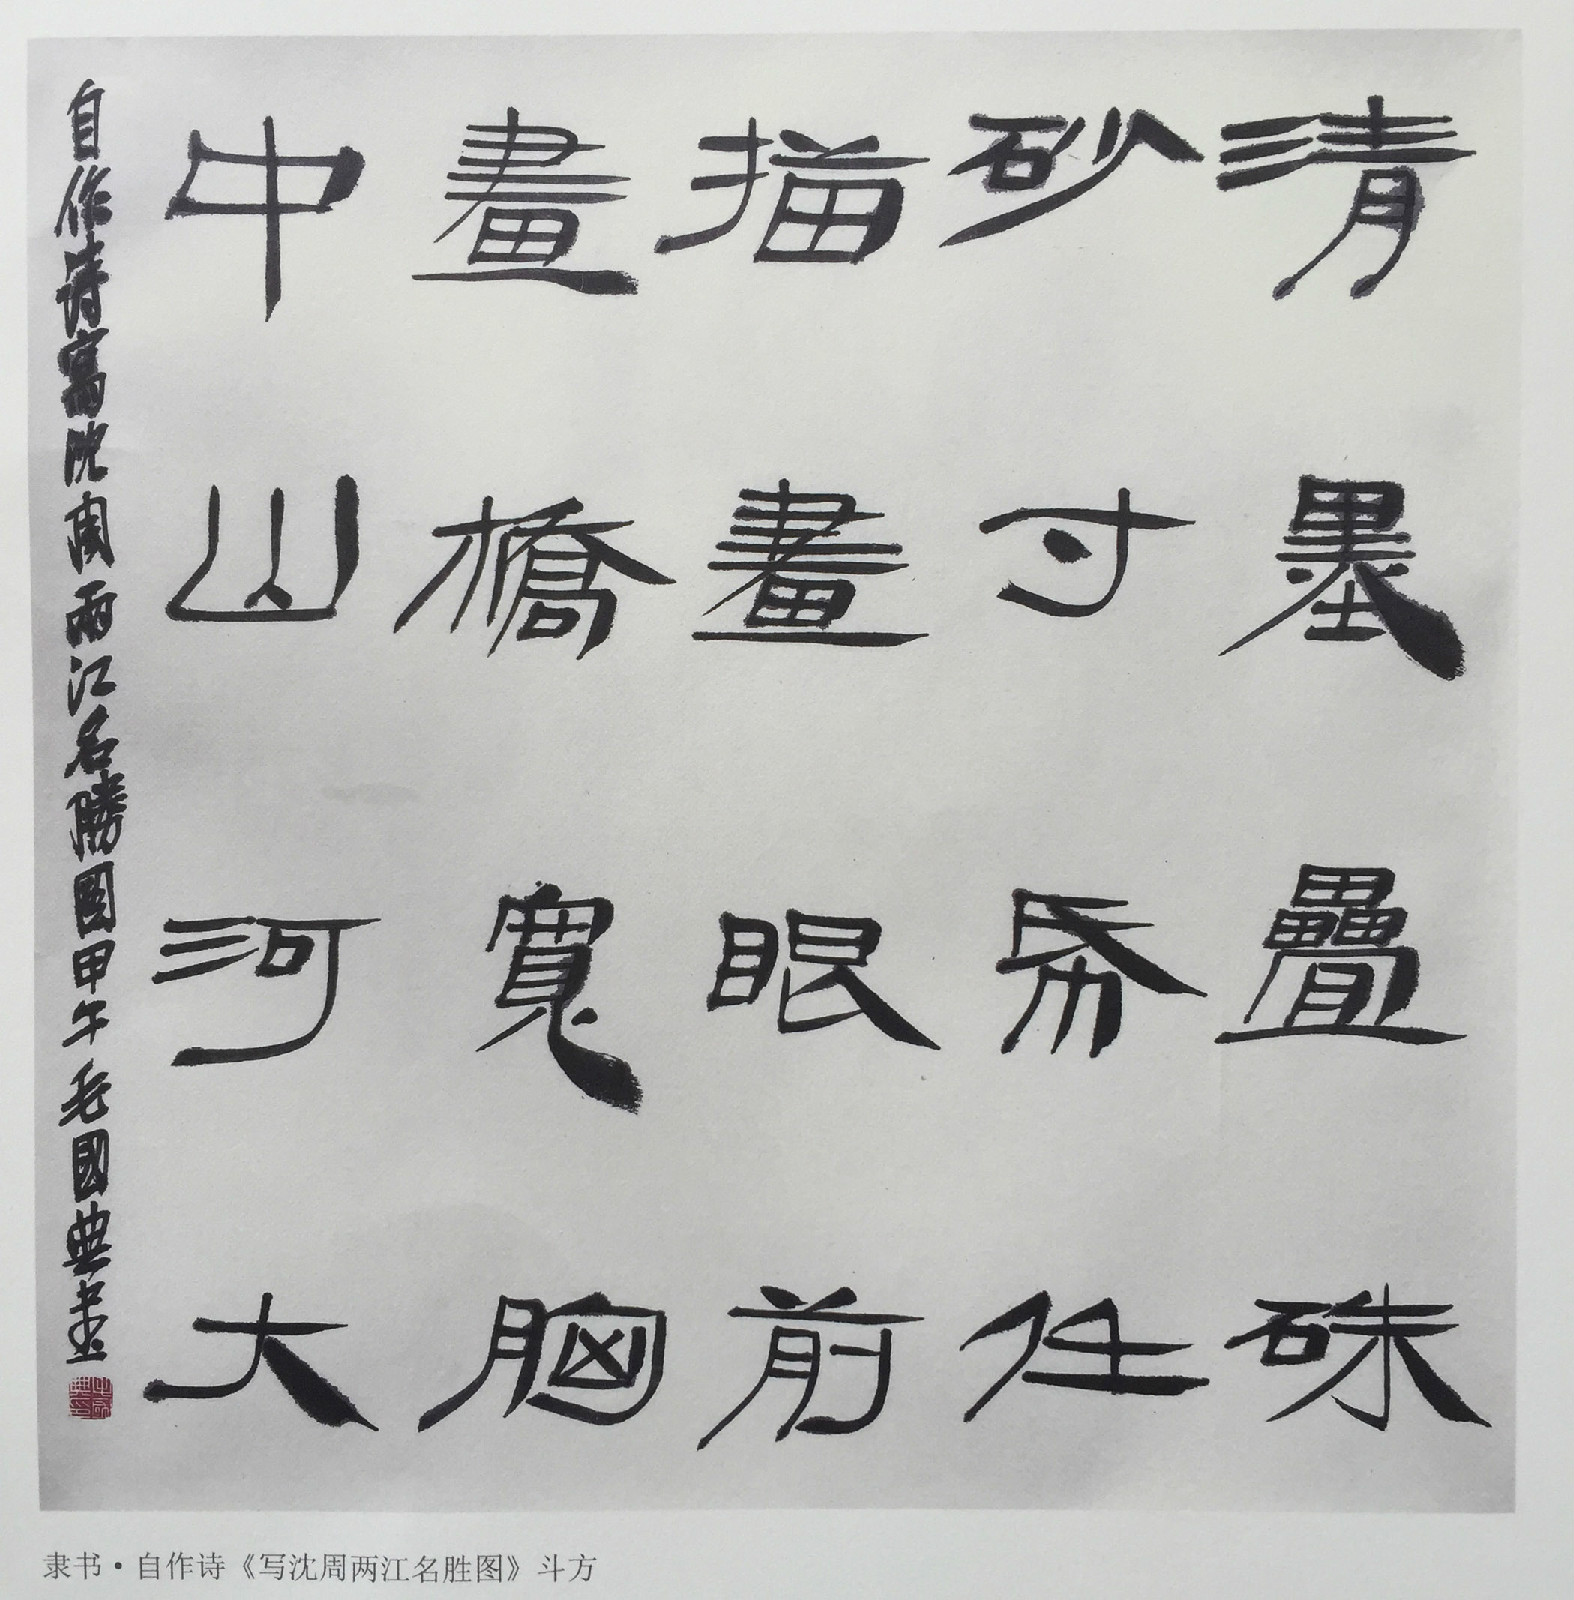 清墨疊硃
砂寸帋任
描畫眼前
畫橋寬胸
中山河大
自作詩寫沈周兩江名勝圖甲午毛國典書
隶书·自作诗《写沈周两江名胜图》斗方